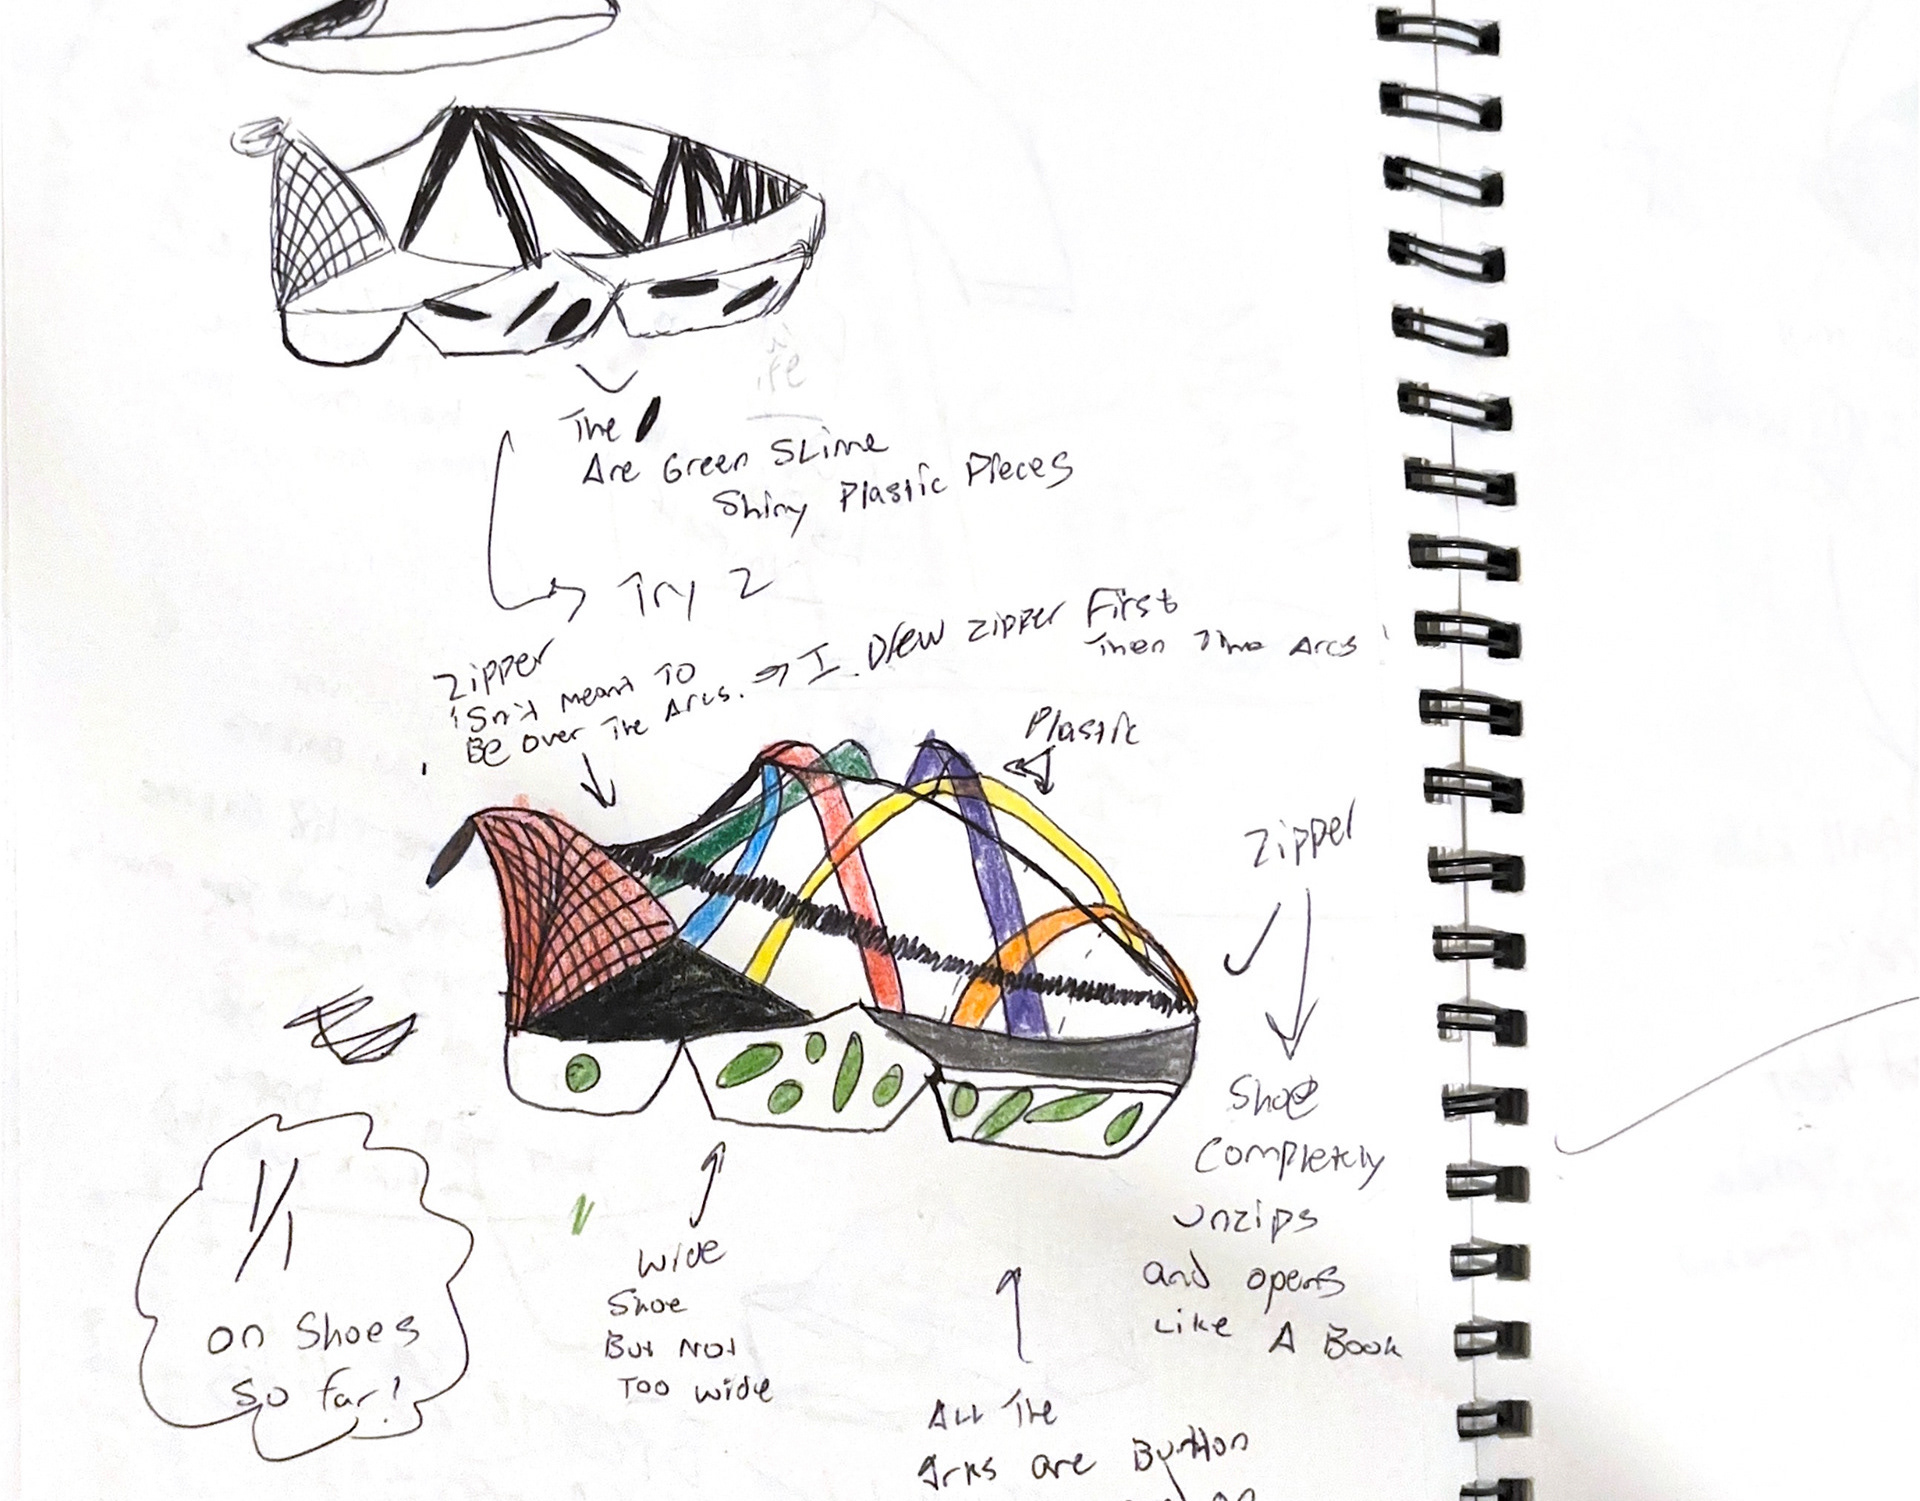 The
Are Green Slime
Shiny Plastic Pieces
Try 2
Zipper
isn't meant To
Be over The Arcs. → I Drew zipper First
Then The Arcs
Plastic
Zipper
Shoe
Completely
unzips
and opens
Like A Book
Wide
Shoe
But Not
Too wide
1/1
on Shoes
So far!
All The
are Button
on